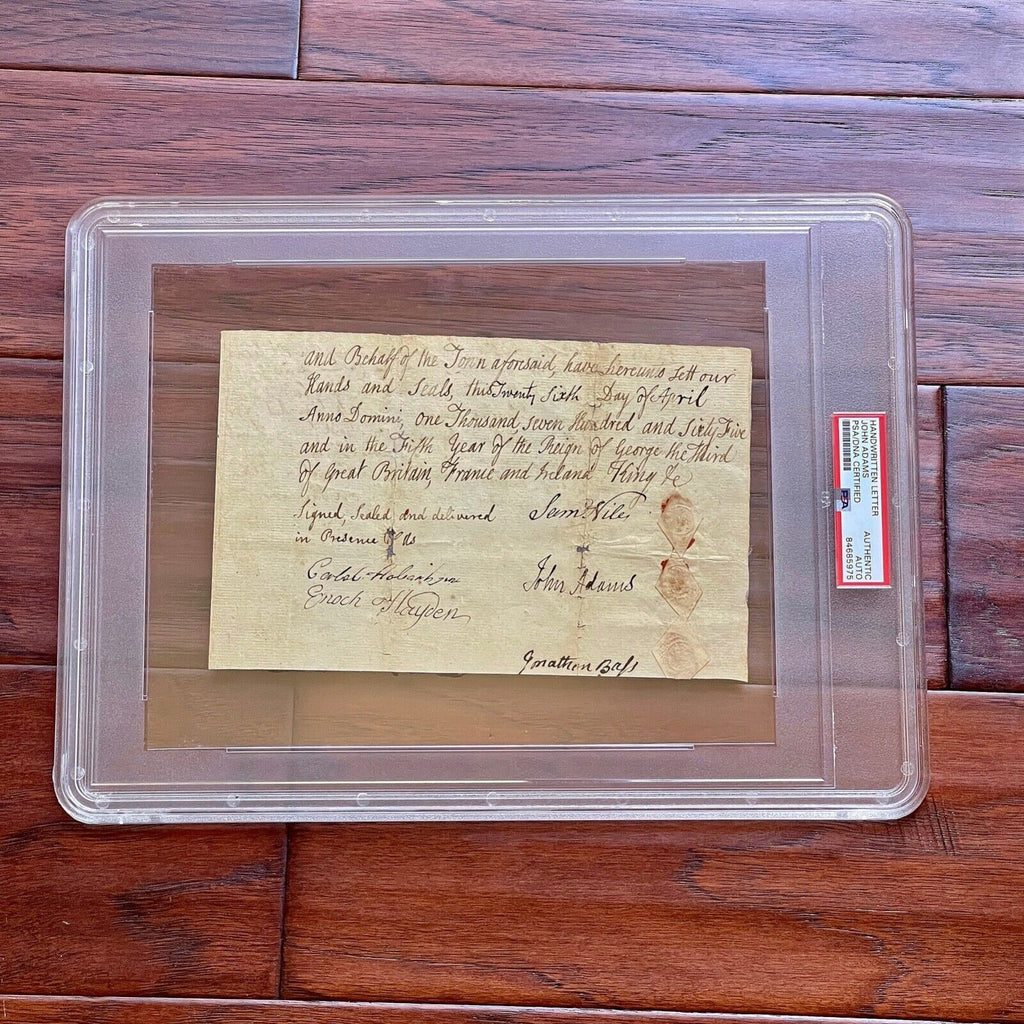 and Behalf of the Town aforesaid, have hereunto sett our
Hands and Seals, this Twenty Sixth Day of April
Anno Domini, one Thousand seven Hundred and Sixty Five
and in the Fifth Year of the Reign of George the third
of Great Britain, France and Ireland King &c
Signed, Sealed and delivered
in Presence of Us
Saml Niles
John Adams
Enoch Hayden
Jonathan Bass
HANDWRITTEN LETTER
JOHN ADAMS
PSA/DNA CERTIFIED
AUTHENTIC
AUTO
84685975
PSA